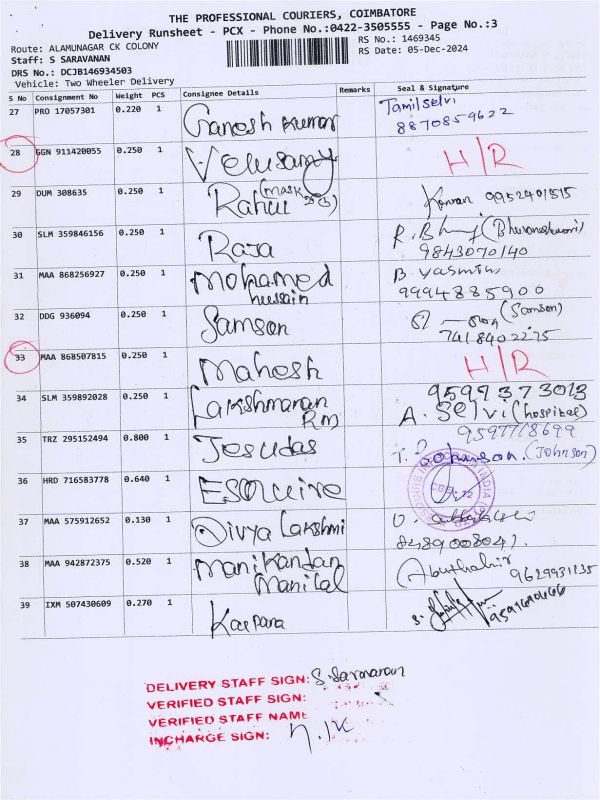 THE PROFESSIONAL COURIERS, COIMBATORE
Delivery Runsheet - PCX - Phone No.:0422-3505555 - Page No.:3
Route: ALAMUNAGAR CK COLONY
RS No.: 1469345
Staff: S SARAVANAN
RS Date: 05-Dec-2024
DRS No.: DCJB146934503
Vehicle: Two Wheeler Delivery
S No Consignment No Weight PCS Consignee Details Remarks Seal & Signature
27 PRO 17057301 0.220 1 Ganesh Kumar Tamilselvi
8870859622
28 GGN 911420055 0.250 1 Velusamy H/R
29 DUM 308635 0.250 1 Rahul (mask 9952401515
30 SLM 359846156 0.250 1 Raja R. (Bhuvaneshwari)
9843070140
31 MAA 868256927 0.250 1 Mohamed B. Yasmin
Hussain 9994885900
32 DDG 936094 0.250 1 Samson (Samson)
7418402275
33 MAA 868507815 0.250 1 Mahesh H/R
34 SLM 359892028 0.250 1 Lakshmanan 9597373013
Rm A. Selvi (hospital)
35 TRZ 295152494 0.800 1 Jesudas 9597718699
(Johnson)
36 HRD 716583778 0.640 1 ESQUIRE
37 MAA 575912652 0.130 1 Divya Lakshmi
8489008042
38 MAA 942872375 0.520 1 Manikandan Abuthahir
Manilal 9629931135
39 IXM 507430609 0.270 1 Kalpana
DELIVERY STAFF SIGN: S. Saravanan
VERIFIED STAFF SIGN:
VERIFIED STAFF NAME
INCHARGE SIGN: